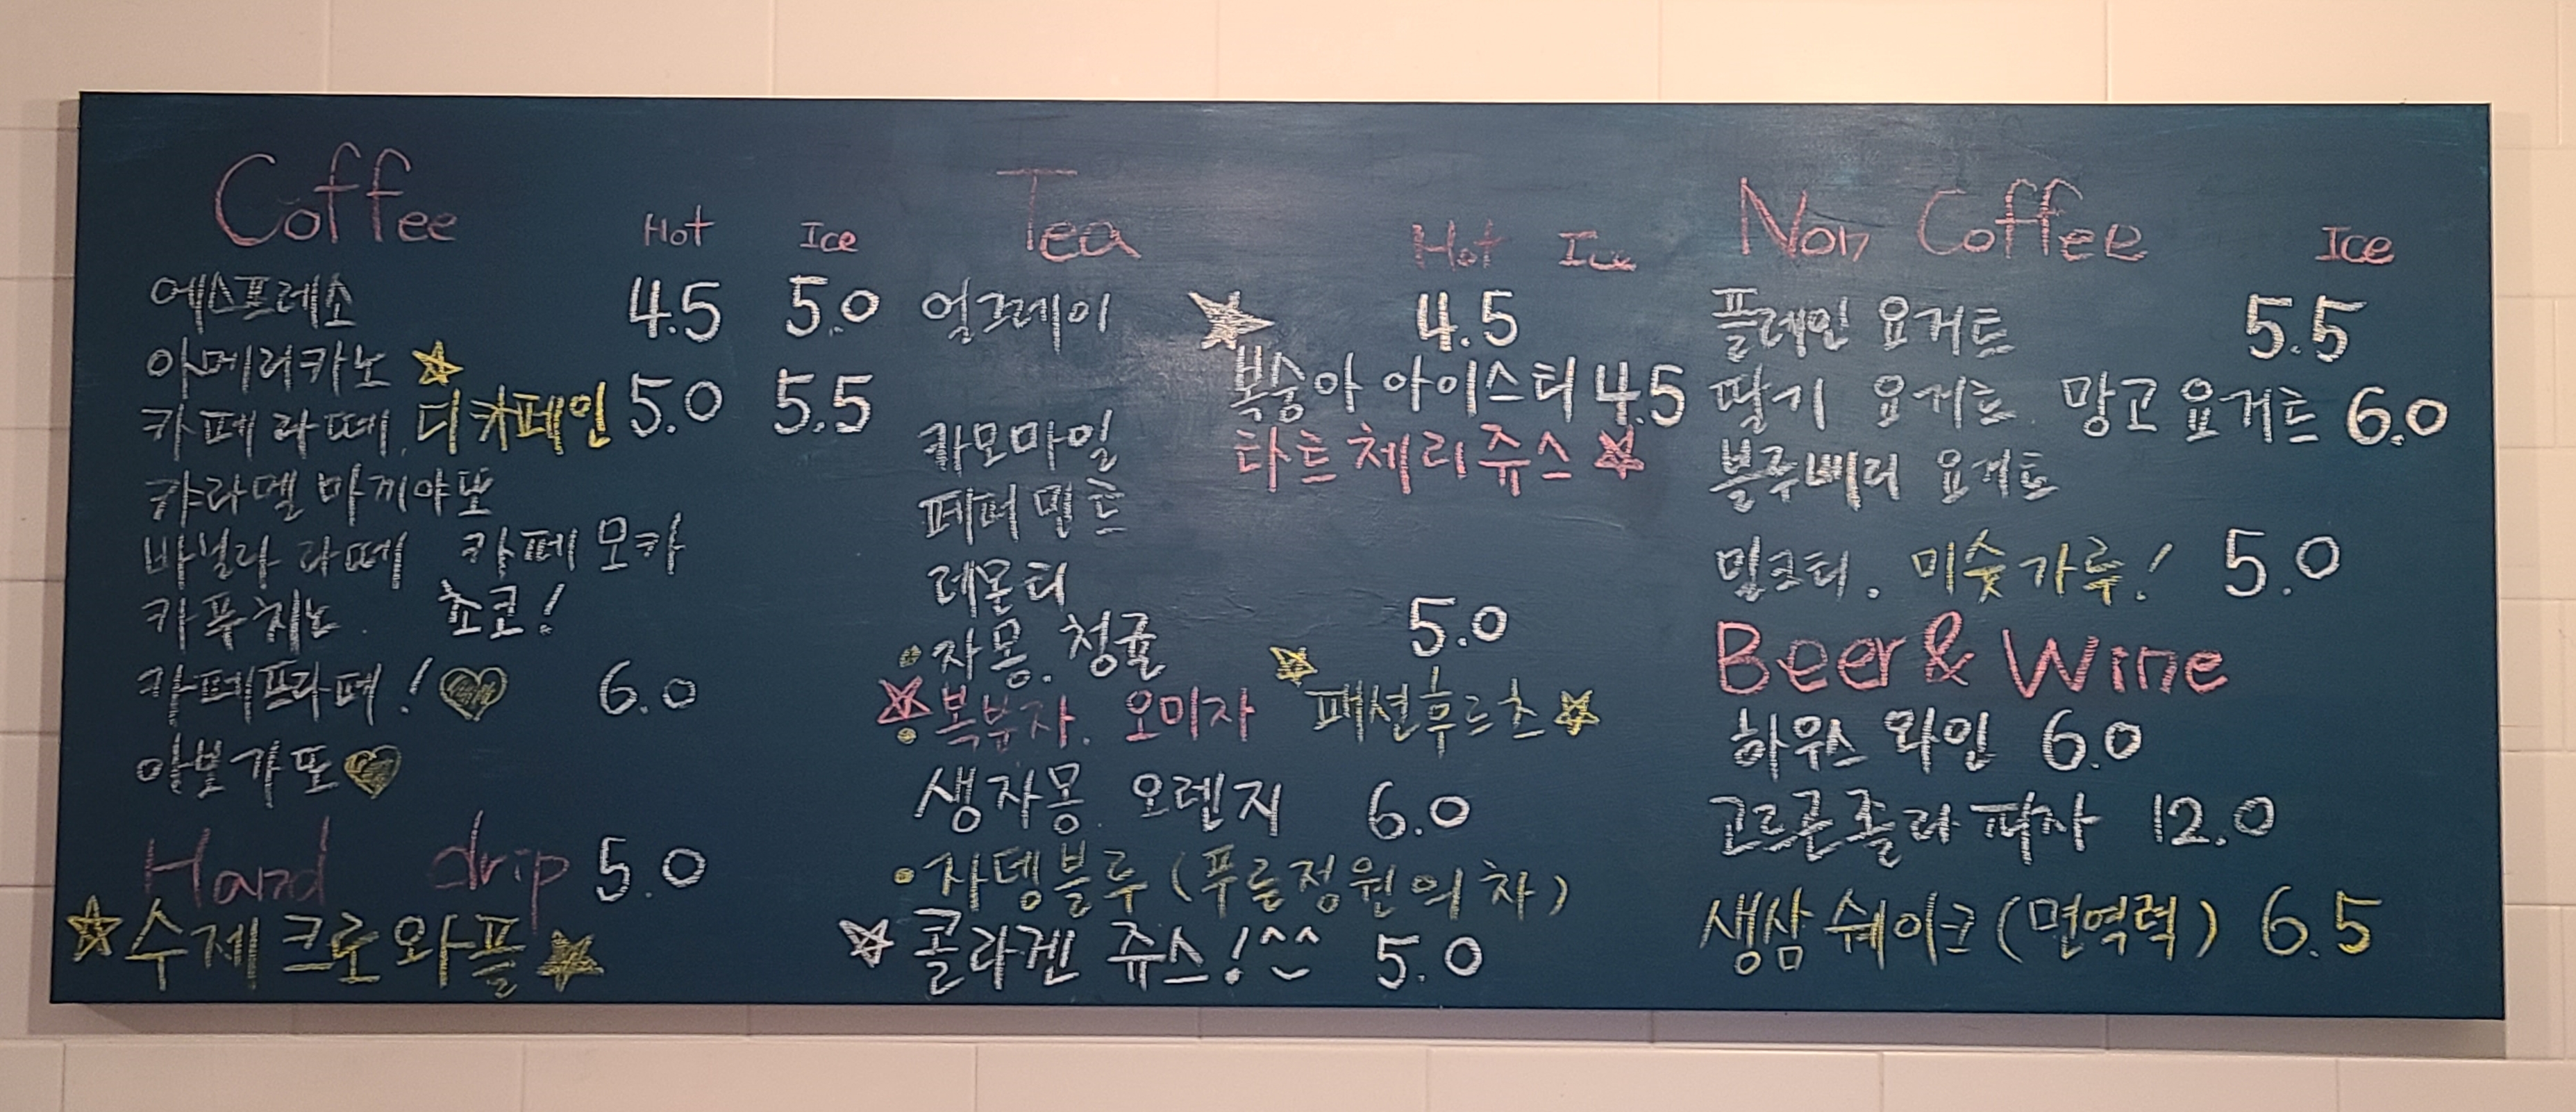 Coffee Hot Ice
에스프레소 4.5 5.0
아메리카노
카페라떼. 디카페인 5.0 5.5
캬라멜 마끼야또
바닐라 라떼 카페모카
카푸치노. 쵸코!
카페프라페! 6.0
아보가또
Hand drip 5.0
수제 크로와플
Tea Hot Ice
얼그레이 4.5
복숭아 아이스티 4.5
카모마일 타트체리쥬스
페퍼민트
레몬티
자몽. 청귤 5.0
복분자. 오미자 패션후르츠
생자몽. 오렌지 6.0
자뎅블루 (푸를정원의 차)
콜라겐 쥬스!^^ 5.0
Non Coffee Ice
플레인 요거트 5.5
딸기 요거트. 망고요거트 6.0
블루베리 요거트
밀크티. 미숫가루! 5.0
Beer & Wine
하우스 와인 6.0
고르곤졸라 피자 12.0
생삼 쉐이크 (면역력) 6.5